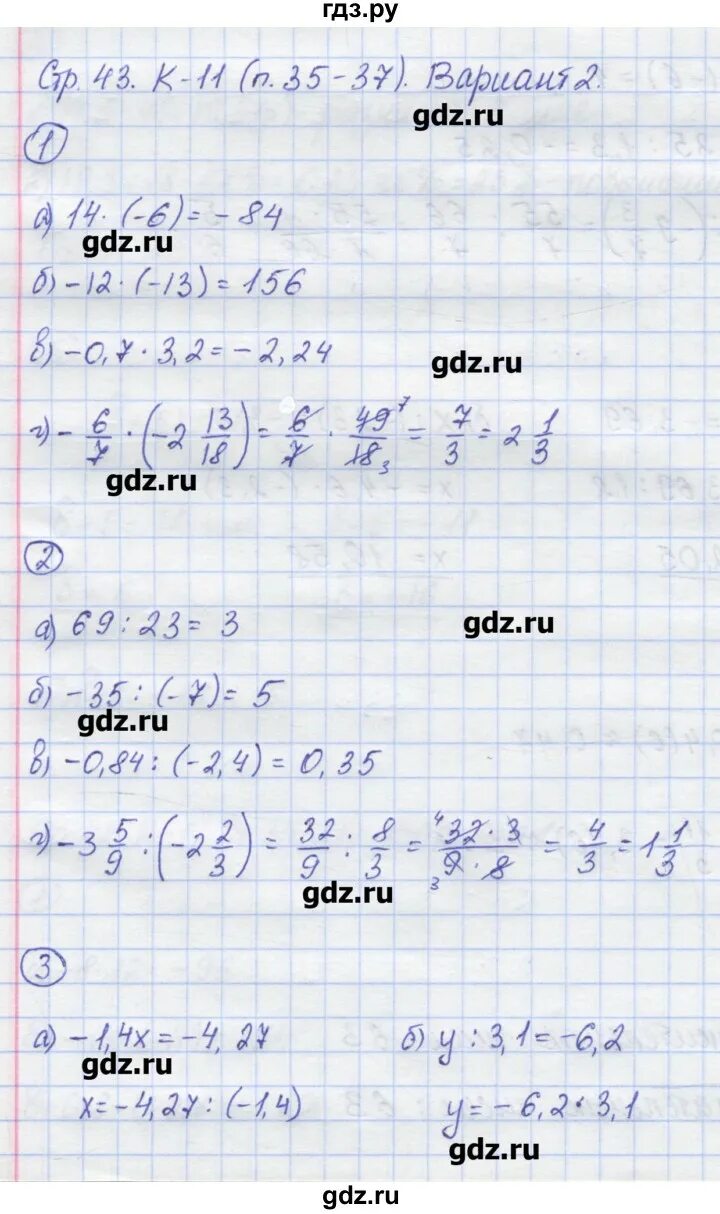 гдз.ру
Стр. 43. К-11 (п. 35-37). Вариант 2.
gdz.ru
1
а) 14 · (-6) = -84
gdz.ru
б) -12 · (-13) = 156
в) -0,7 · 3,2 = -2,24
gdz.ru
г) - 6/7 · (-2 13/18) = 6/7 · 49/18 = 7/3 = 2 1/3
7
3
gdz.ru
2
а) 69 : 23 = 3
gdz.ru
б) -35 : (-7) = 5
gdz.ru
в) -0,84 : (-2,4) = 0,35
г) -3 5/9 : (-2 2/3) = 32/9 : 8/3 = 32 · 3/9 · 8 = 4/3 = 1 1/3
4
3
gdz.ru
3
а) -1,4x = -4,27 б) y : 3,1 = -6,2
gdz.ru
x = -4,27 : (-1,4) y = -6,2 · 3,1
gdz.ru
gdz.ru